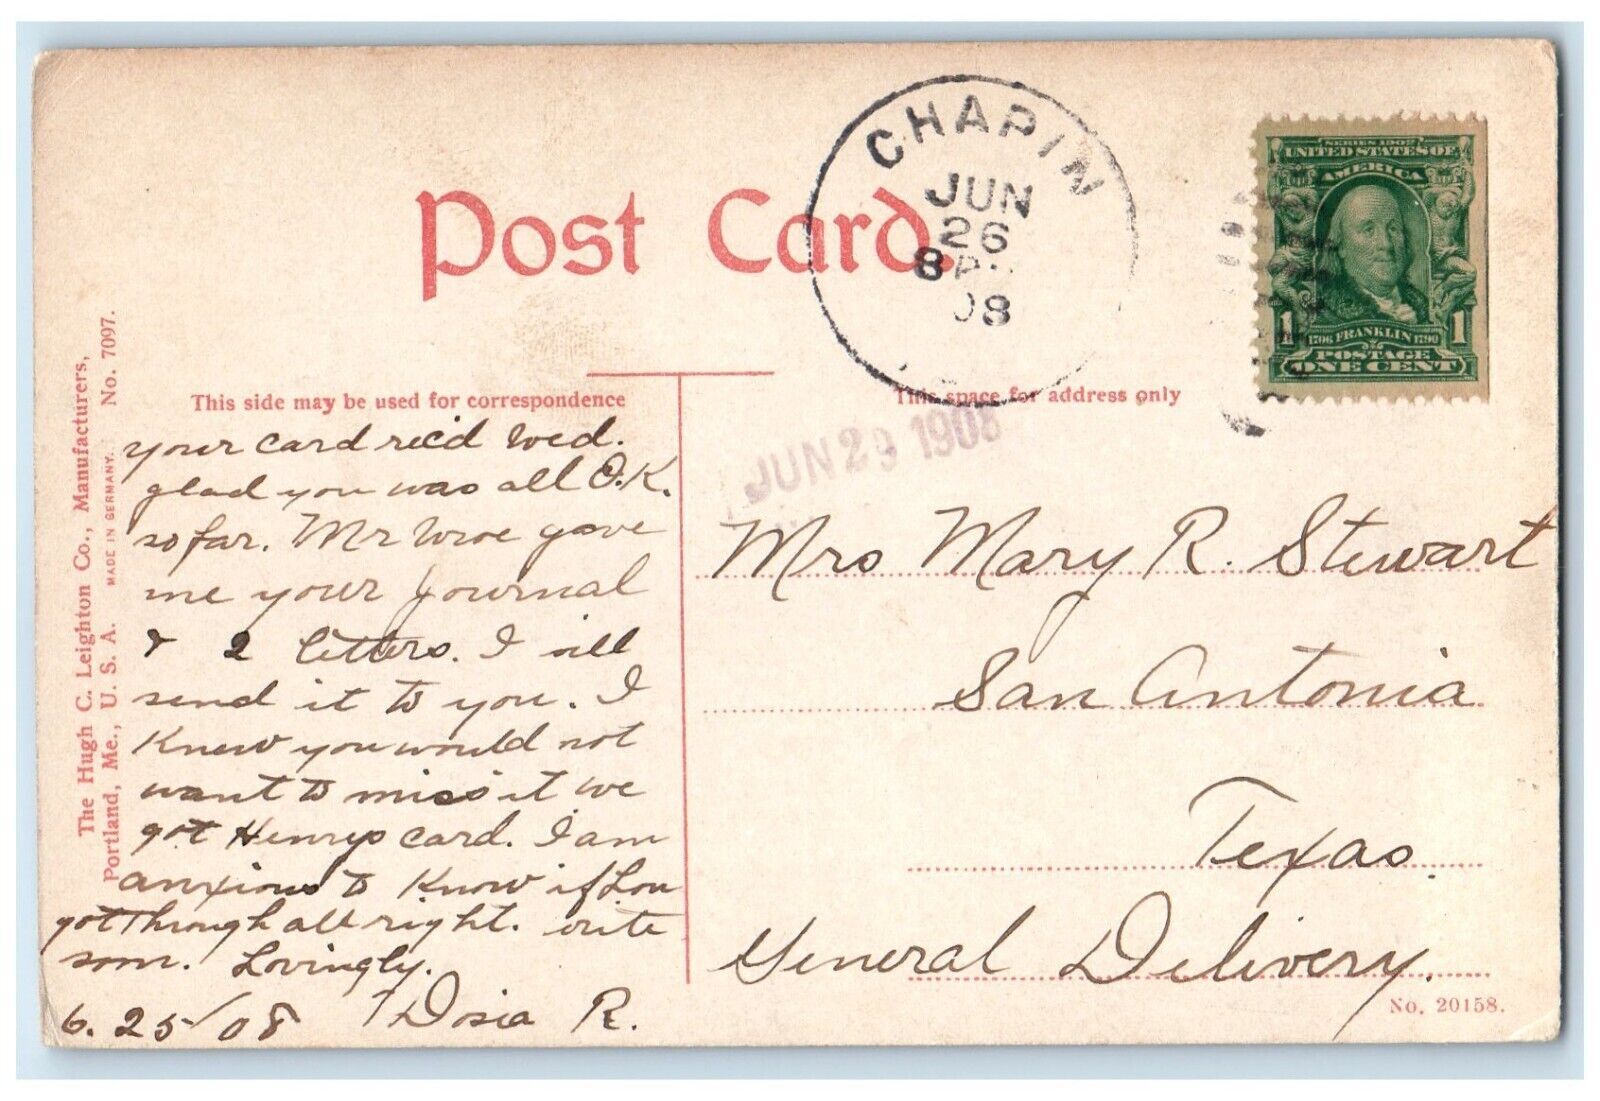 Post Card.
CHAPIN
JUN
26
8 P
08
SERIES 1902
UNITED STATES OF
AMERICA
1 1706 FRANKLIN 1790 1
POSTAGE
ONE CENT
This side may be used for correspondence
This space for address only
JUN 29 1908
The Hugh C. Leighton Co., Manufacturers,
Portland, Me., U. S. A. MADE IN GERMANY. No. 7097.
your card rec'd Wed.
glad you was all O.K.
so far. Mr Wroe gave
me your Journal
& 2 letters. I will
send it to you. I
Knew you would not
want to miss it we
got Henrys card. I am
anxious to Know if Lou
got through all right. write
soon. Lovingly.
6. 25/08 Dosia R.
Mrs Mary R. Stewart
San Antonia
Texas.
General Delivery.
No. 20158.